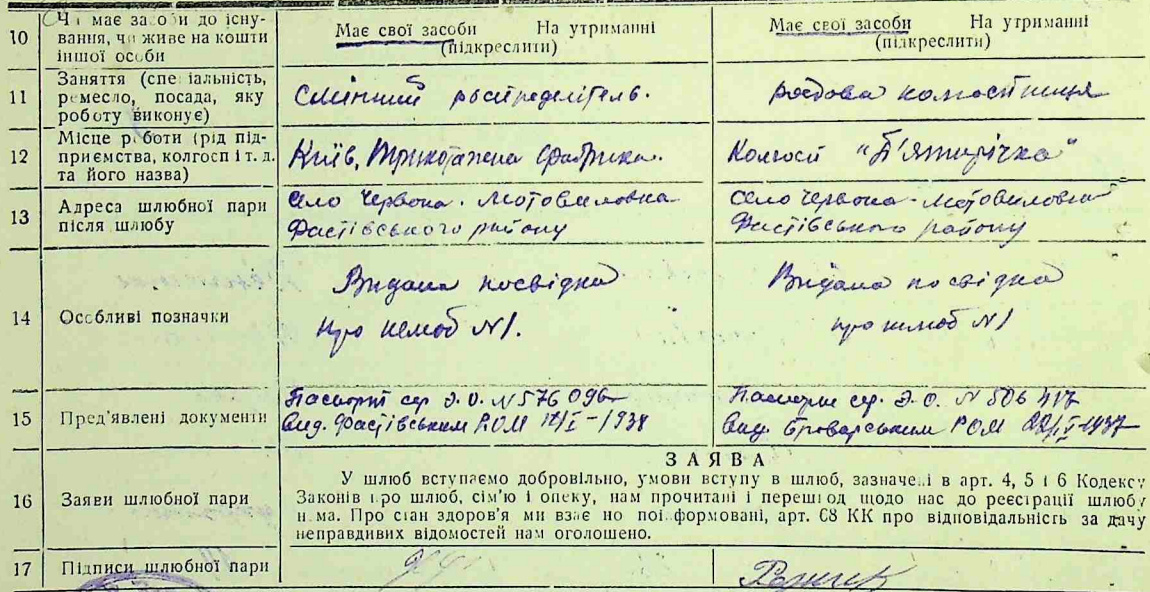 10 Чи має засоби до існу-
вання, чи живе на кошти
іншої особи
Має свої засоби На утриманні
(підкреслити)
Має свої засоби На утриманні
(підкреслити)
11 Заняття (спеціальність,
ремесло, посада, яку
роботу виконує)
Смінний роспределітель.
рядова колгоспниця
12 Місце роботи (рід під-
приємства, колгосп і т. д.
та його назва)
Київ, Трикотажна фабрика.
Колгосп "П'ятирічка"
13 Адреса шлюбної пари
після шлюбу
село Червона-Мотовиловка
Фастівського району
село Червона-Мотовиловка
Фастівського району
14 Особливі позначки
Видана посвідка
про шлюб №1.
Видана посвідка
про шлюб №1
15 Пред'явлені документи
Паспорт сер. Э.О. №576096
Вид. Фастівським РОМ /I-1938
Паспорт сер. Э.О. №506417
Вид. Броварським РОМ
16 Заяви шлюбної пари
ЗАЯВА
У шлюб вступаємо добровільно, умови вступу в шлюб, зазначені в арт. 4, 5 і 6 Кодексу
Законів про шлюб, сім'ю і опеку, нам прочитані і перешкод щодо нас до реєстрації шлюбу
нема. Про стан здоров'я ми взаємно поінформовані, арт. 68 КК про відповідальність за дачу
неправдивих відомостей нам оголошено.
17 Підписи шлюбної пари